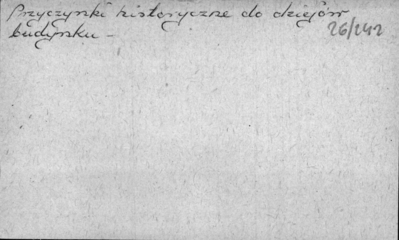 Przyczynki historyczne do dziejów
budynku –
26/242